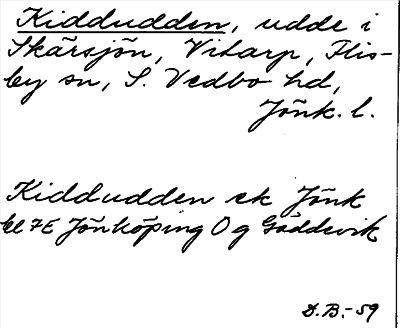 Kiddudden, udde i
Skärsjön, Vitarp, Flis-
by sn, S. Vedbo hd,
Jönk. l.
Kiddudden ek Jönk
bl 7E Jönköping O g Gäddevik
D.B.-59